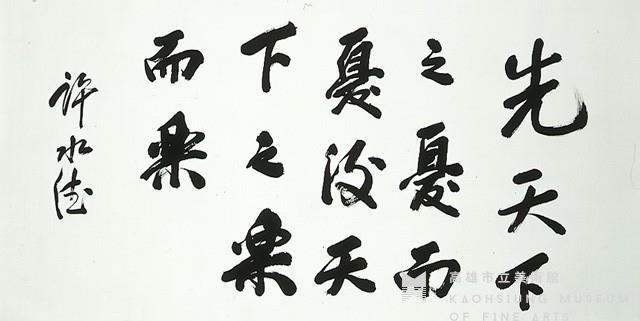 先天下
之憂而
憂後天
下之樂
而樂
許水德
高雄市立美術館
KAOHSIUNG MUSEUM
OF FINE ARTS